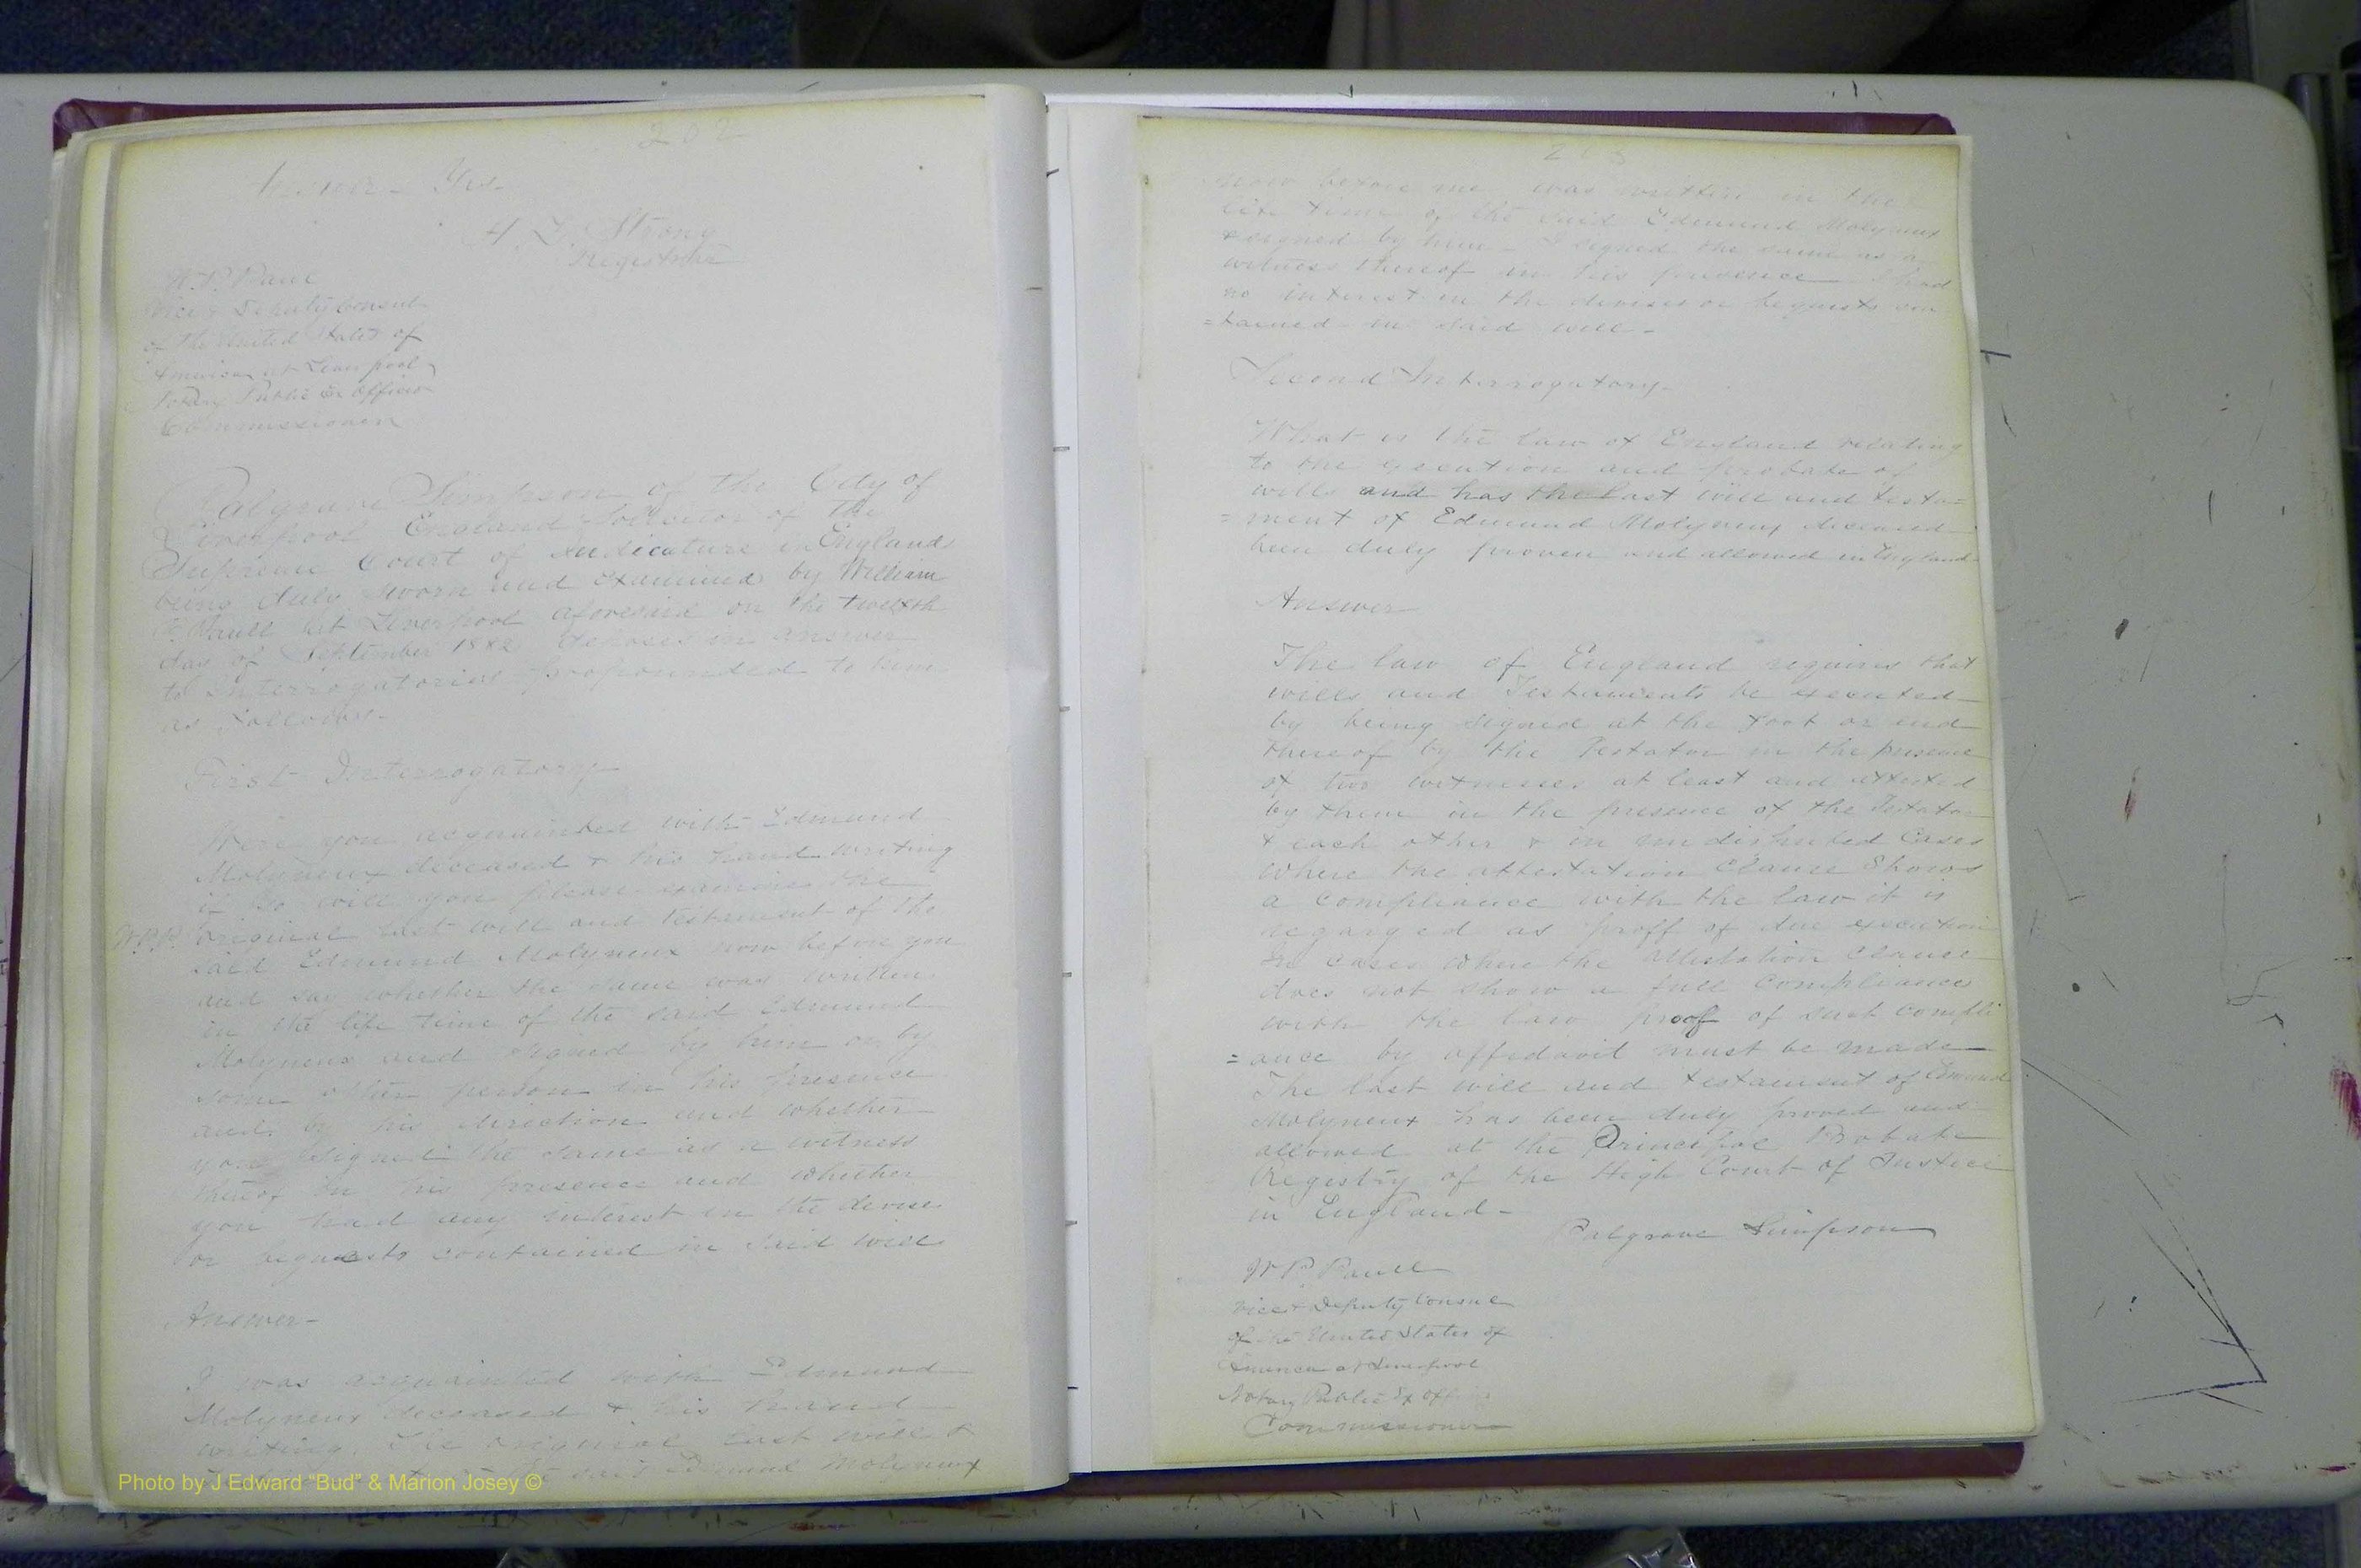 202
Answer - Yes -
H. D. Strong
Registrar
W. P. Paul
Vice & Deputy Consul
of the United States of
America at Liverpool
Notary Public Ex Officio
Commissioner
Palgrave Simpson of the City of
Liverpool England Solicitor of the
Supreme Court of Judicature in England
being duly sworn and examined by William
P. Paull at Liverpool aforesaid on the twelfth
day of September 1882 deposes in answer
to Interrogatories propounded to him
as follows -
First Interrogatory
Were you acquainted with Edmund
Molyneux deceased & his hand writing
if so will you please examine the
W.P.P. original last will and testament of the
said Edmund Molyneux now before you
and say whether the same was written
in the life time of the said Edmund
Molyneux and signed by him or by
some other person in his presence
and by his direction and whether
you signed the same as a witness
thereof in his presence and whether
you had any interest in the devise
or bequests contained in said will
Answer -
I was acquainted with Edmund
Molyneux deceased & his hand
writing. The original last will &
the said Edmund Molyneux
Photo by J Edward “Bud” & Marion Josey ©
203
now before me was written in the
life time of the said Edmund Molyneux
& signed by him - I signed the same as a
witness thereof in his presence I had
no interest in the devises or bequests con
=tained in said will -
Second Interrogatory -
What is the law of England relating
to the execution and probate of
wills and has the last will and testa=
=ment of Edmund Molyneux deceased
been duly proven and allowed in England
Answer
The law of England requires that
wills and Testaments be executed
by being signed at the foot or end
thereof by the Testator in the presence
of two witnesses at least and attested
by them in the presence of the Testator
& each other & in undisputed Cases
where the attestation clause Shows
a compliance with the law it is
regarged as proff of due execution
In cases where the attestation clause
does not show a full compliance
with the law proof of such compli
=ance by affidavit must be made
The last will and testament of Edmund
Molyneux has been duly proved and
allowed at the Principal Probate
Registry of the High Court of Justice
in England -
Palgrave Simpson
W P Paull
Vice & Deputy Consul
of the United States of
America at Liverpool
Notary Public Ex Officio
Commissioner